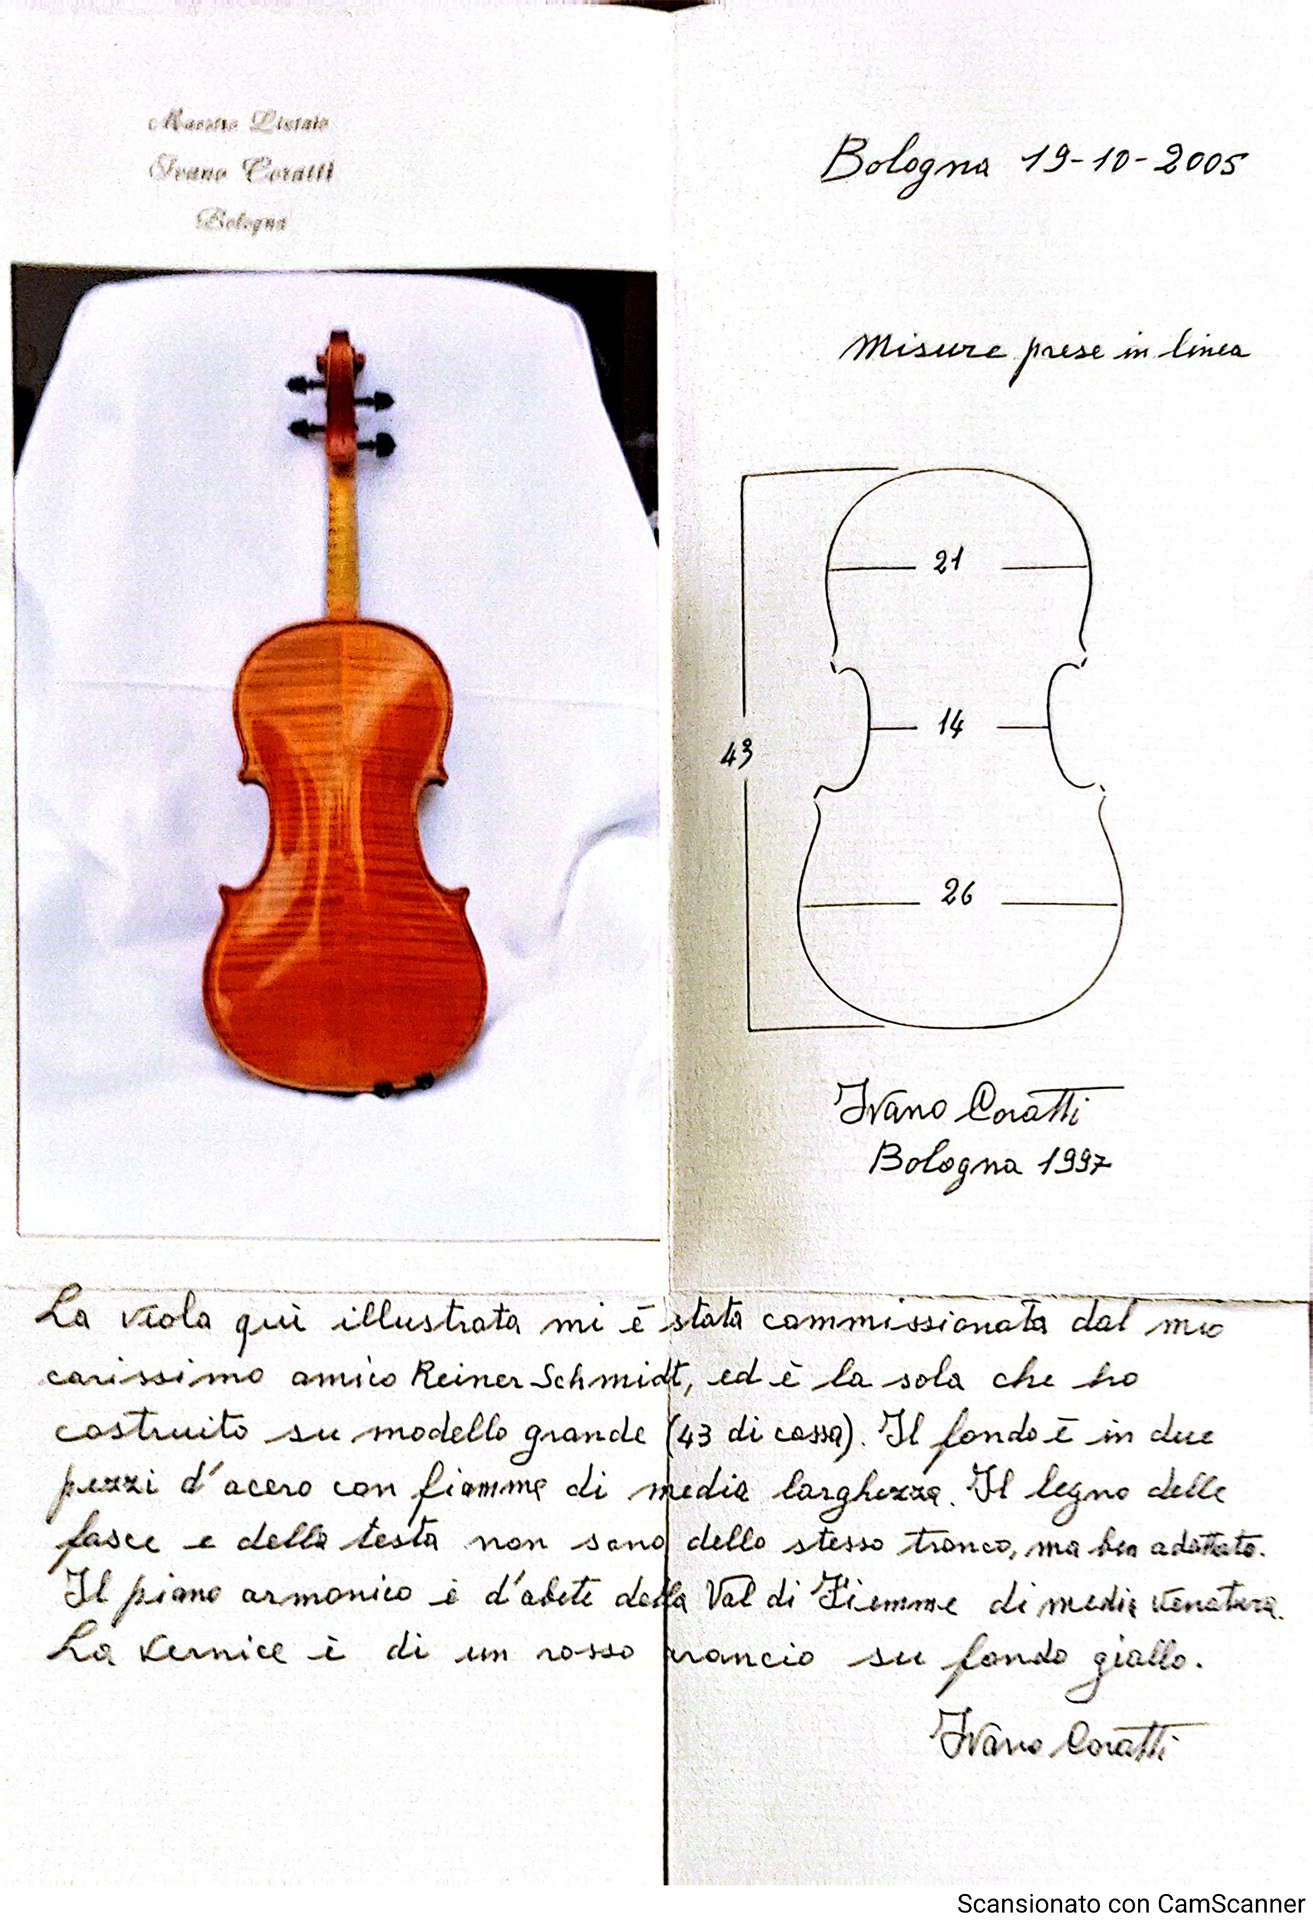 Maestro Liutaio
Ivano Coratti
Bologna
Bologna 19-10-2005
Misure prese in linea
21
14
43
26
Ivano Coratti
Bologna 1997
La viola quì illustrata mi è stata commissionata dal mio
carissimo amico Reiner Schmidt, ed è la sola che ho
costruito su modello grande (43 di cassa). Il fondo è in due
pezzi d'acero con fiamme di media larghezza. Il legno delle
fasce e della testa non sono dello stesso tronco, ma ben adattato.
Il piano armonico è d'abete della Val di Fiemme di media venatura.
La vernice è di un rosso arancio su fondo giallo.
Ivano Coratti
Scansionato con CamScanner